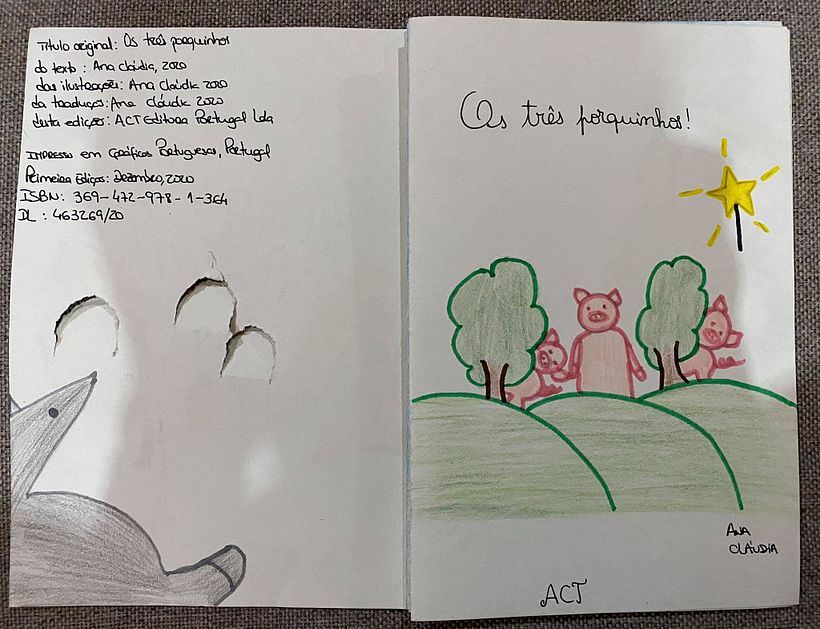 Título original: Os três porquinhos
do texto: Ana Cláudia, 2020
das ilustrações: Ana Cláudia 2020
da tradução: Ana Cláudia 2020
desta edição: ACT Editora Portugal Lda
Impresso em Gráficos Portugueses, Portugal
Primeira Edição: Dezembro, 2020
ISBN: 369-472-978-1-364
DL: 463269/20
Os três porquinhos!
Ana
Cláudia
ACT